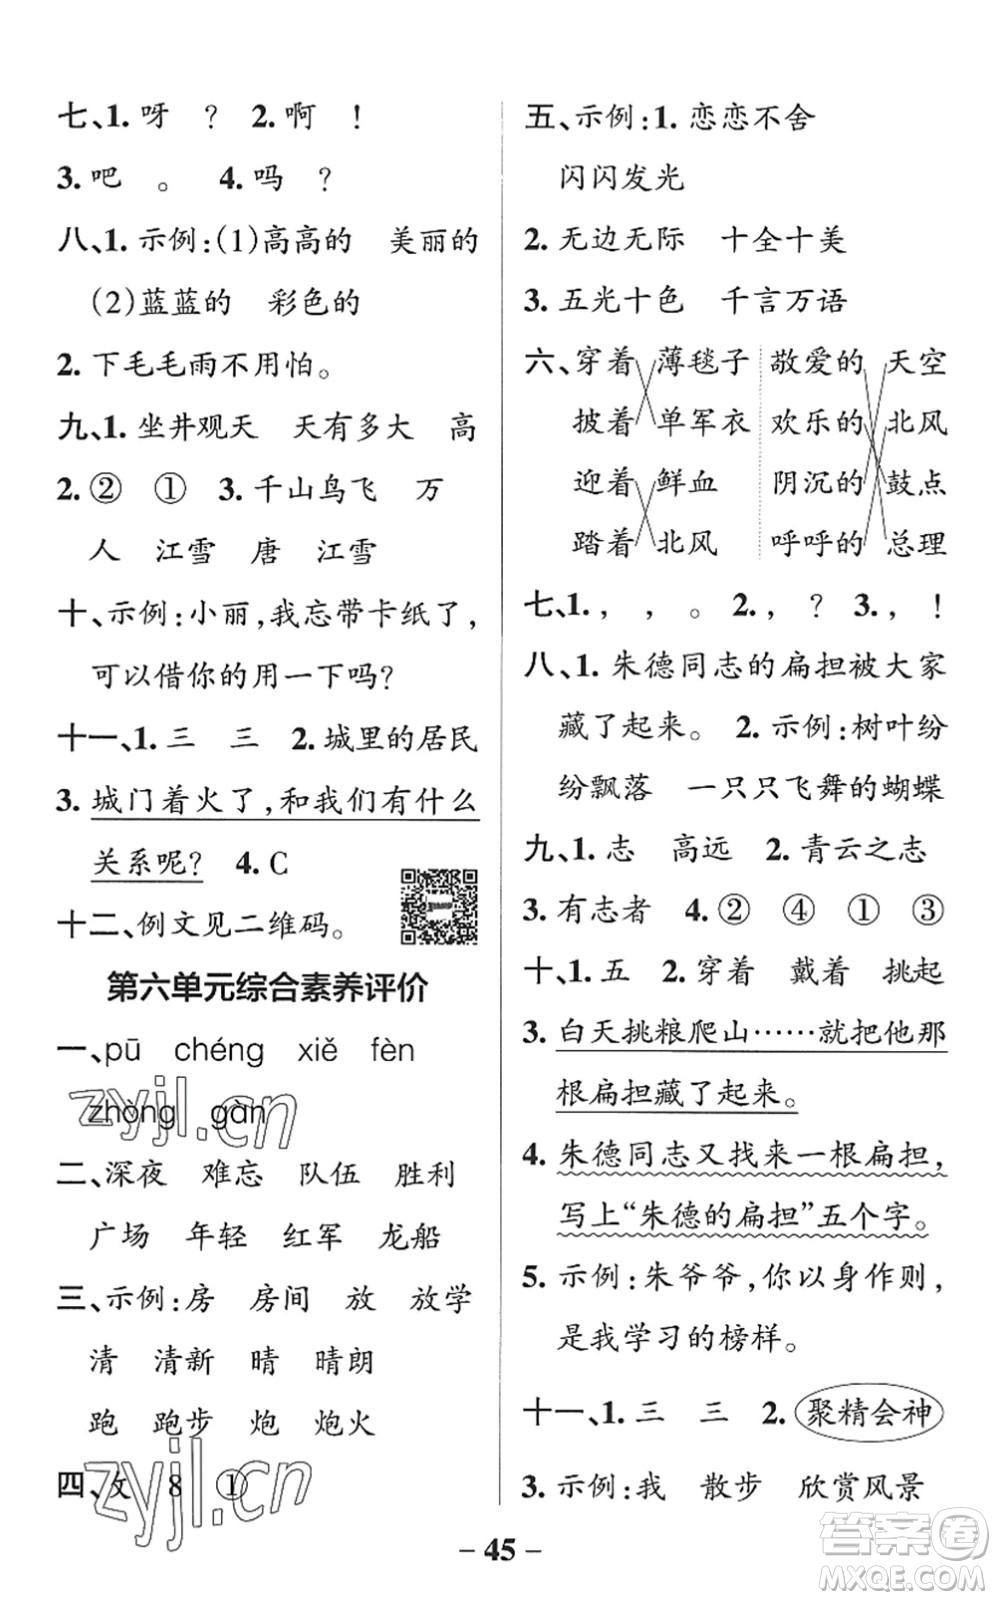 七、1. 呀 ? 2. 啊 !
3. 吧 。 4. 吗 ?
八、1. 示例:(1)高高的 美丽的
(2)蓝蓝的 彩色的
2. 下毛毛雨不用怕。
九、1. 坐井观天 天有多大 高
2. ② ① 3. 千山鸟飞 万
人 江雪 唐 江雪
十、示例:小丽,我忘带卡纸了,
可以借你的用一下吗?
十一、1. 三 三 2. 城里的居民
3. 城门着火了,和我们有什么
关系呢? 4. C
十二、例文见二维码。
第六单元综合素养评价
一、pū chéng xiě fèn
zhòng gàn
二、深夜 难忘 队伍 胜利
广场 年轻 红军 龙船
三、示例:房 房间 放 放学
清 清新 晴 晴朗
跑 跑步 炮 炮火
四、攵 8 ①
五、示例:1. 恋恋不舍
闪闪发光
2. 无边无际 十全十美
3. 五光十色 千言万语
六、穿着 薄毯子 敬爱的 天空
披着 单军衣 欢乐的 北风
迎着 鲜血 阴沉的 鼓点
踏着 北风 呼呼的 总理
七、1. , , 。 2. , ? 3. , !
八、1. 朱德同志的扁担被大家
藏了起来。 2. 示例:树叶纷
纷飘落 一只只飞舞的蝴蝶
九、1. 志 高远 2. 青云之志
3. 有志者 4. ② ④ ① ③
十、1. 五 2. 穿着 戴着 挑起
3. 白天挑粮爬山……就把他那
根扁担藏了起来。
4. 朱德同志又找来一根扁担,
写上“朱德的扁担”五个字。
5. 示例:朱爷爷,你以身作则,
是我学习的榜样。
十一、1. 三 三 2. 聚精会神
3. 示例:我 散步 欣赏风景
– 45 –
zyjl.cn
zyjl.cn
答案圈
MXQE.COM